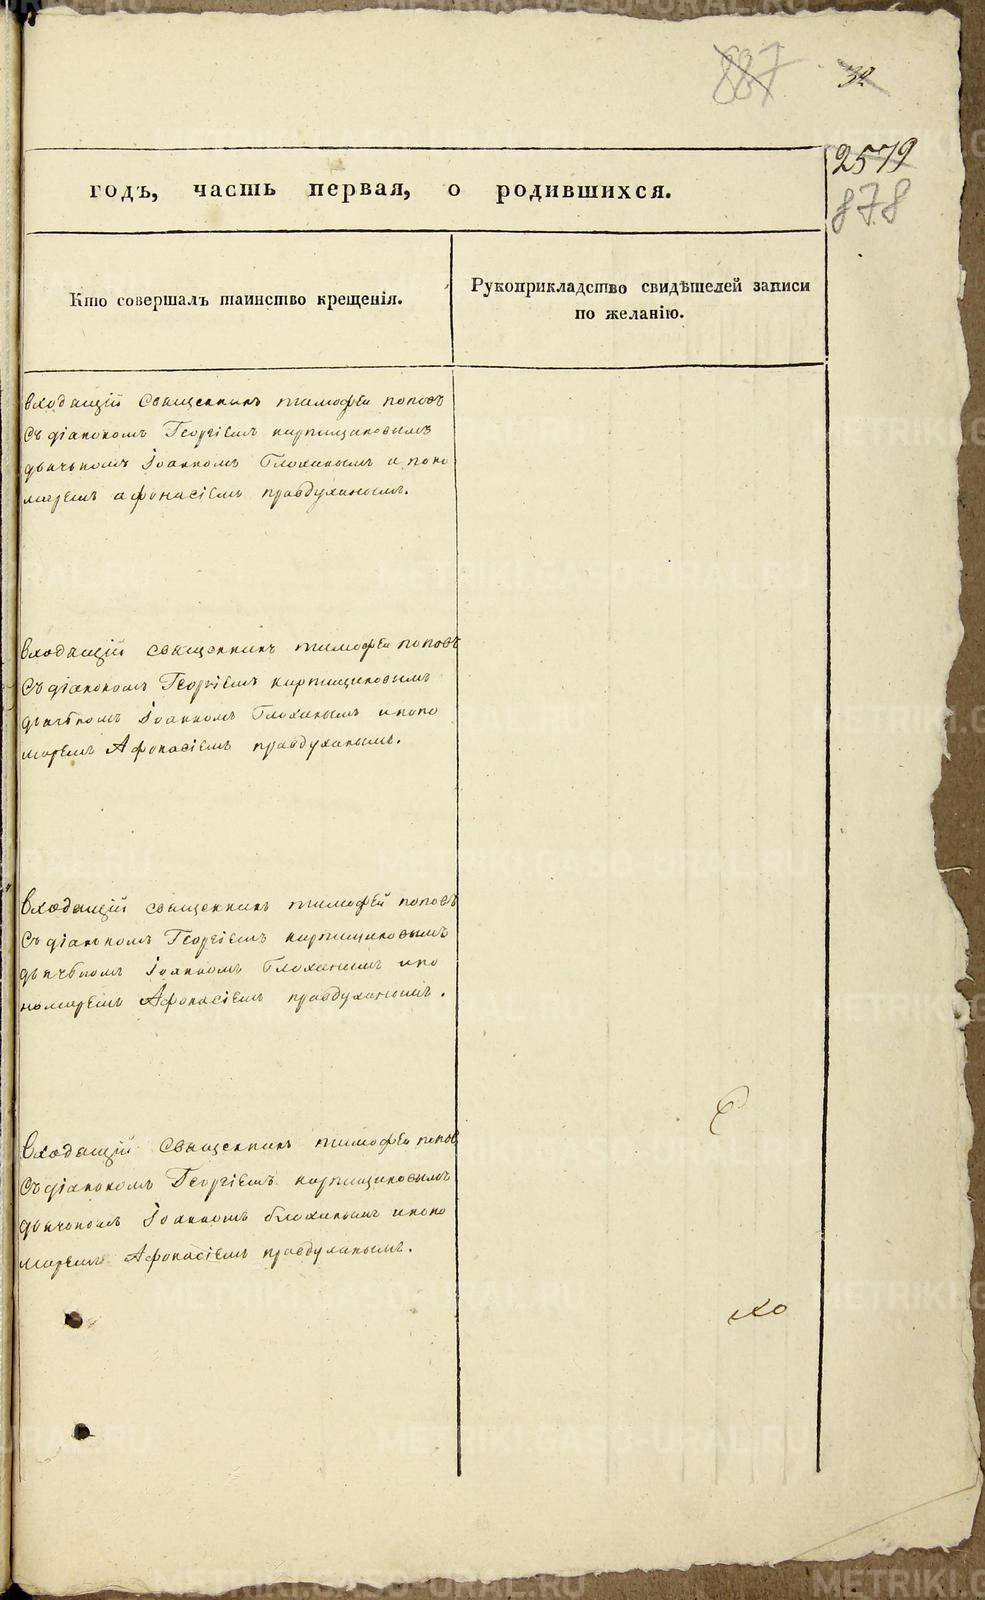 887 32
2579
878
годъ, часть первая, о родившихся.
Кто совершалъ таинство крещенія.
Рукоприкладство свидѣтелей записи
по желанію.
Входащій Священникъ тимофеи поповъ
Съ діакономъ Георгіемъ кирпищиковымъ
дьячькомъ Іоанномъ Блохинымъ и поно
маремъ афонасіемъ правдухинымъ.
Входащій священникъ тимофеи поповъ
Съ діакономъ Георгіемъ кирпищиковымъ
дьячкомъ Іоанномъ Блохинымъ и поно
маремъ Афонасіемъ правдухинымъ.
Входащій священникъ тимофей поповъ
Съ діакономъ Георгіемъ кирпищиковымъ
дьячкомъ Іоанномъ Блохинымъ и по
номаремъ Афонасіемъ правдухинымъ.
Входащій Священникъ тимофеи попов
Съ діакономъ Георгіемъ кирпищиковымъ
дьячкомъ Іоанномъ блохинымъ и поно
маремъ Афонасіемъ правдухинымъ.
METRIKI.GASO-URAL.RU